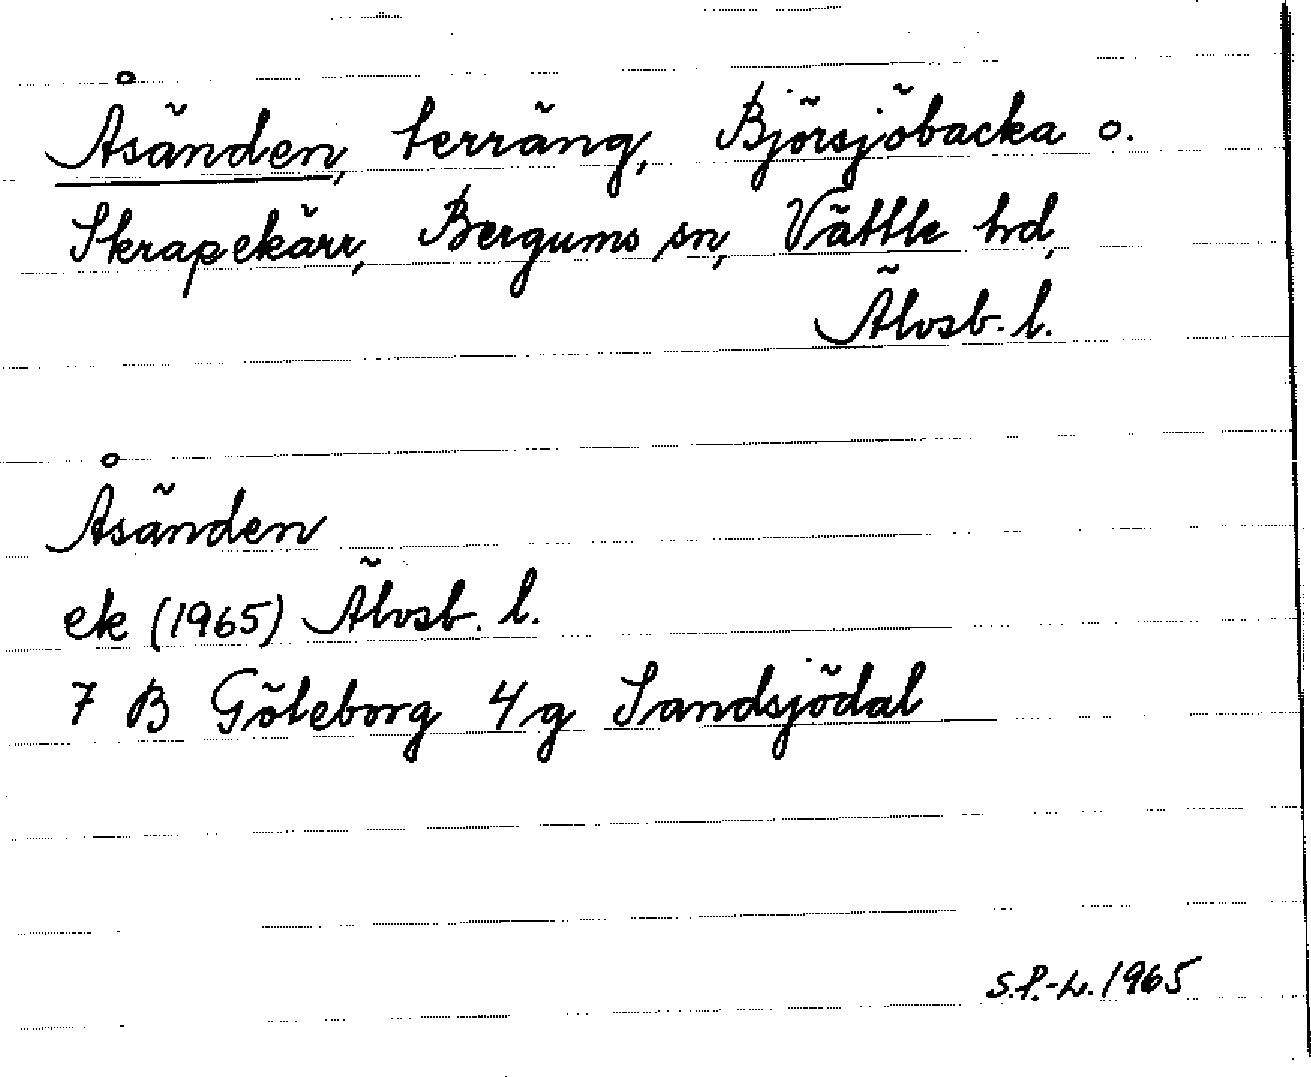 Åsänden, terräng, Björsjöbacka o.
Skrapekärr, Bergums sn, Vättle hd,
Älvsb. l.
Åsänden
ek (1965) Älvsb. l.
7 B Göteborg 4g Sandsjödal
S.P.-L. 1965